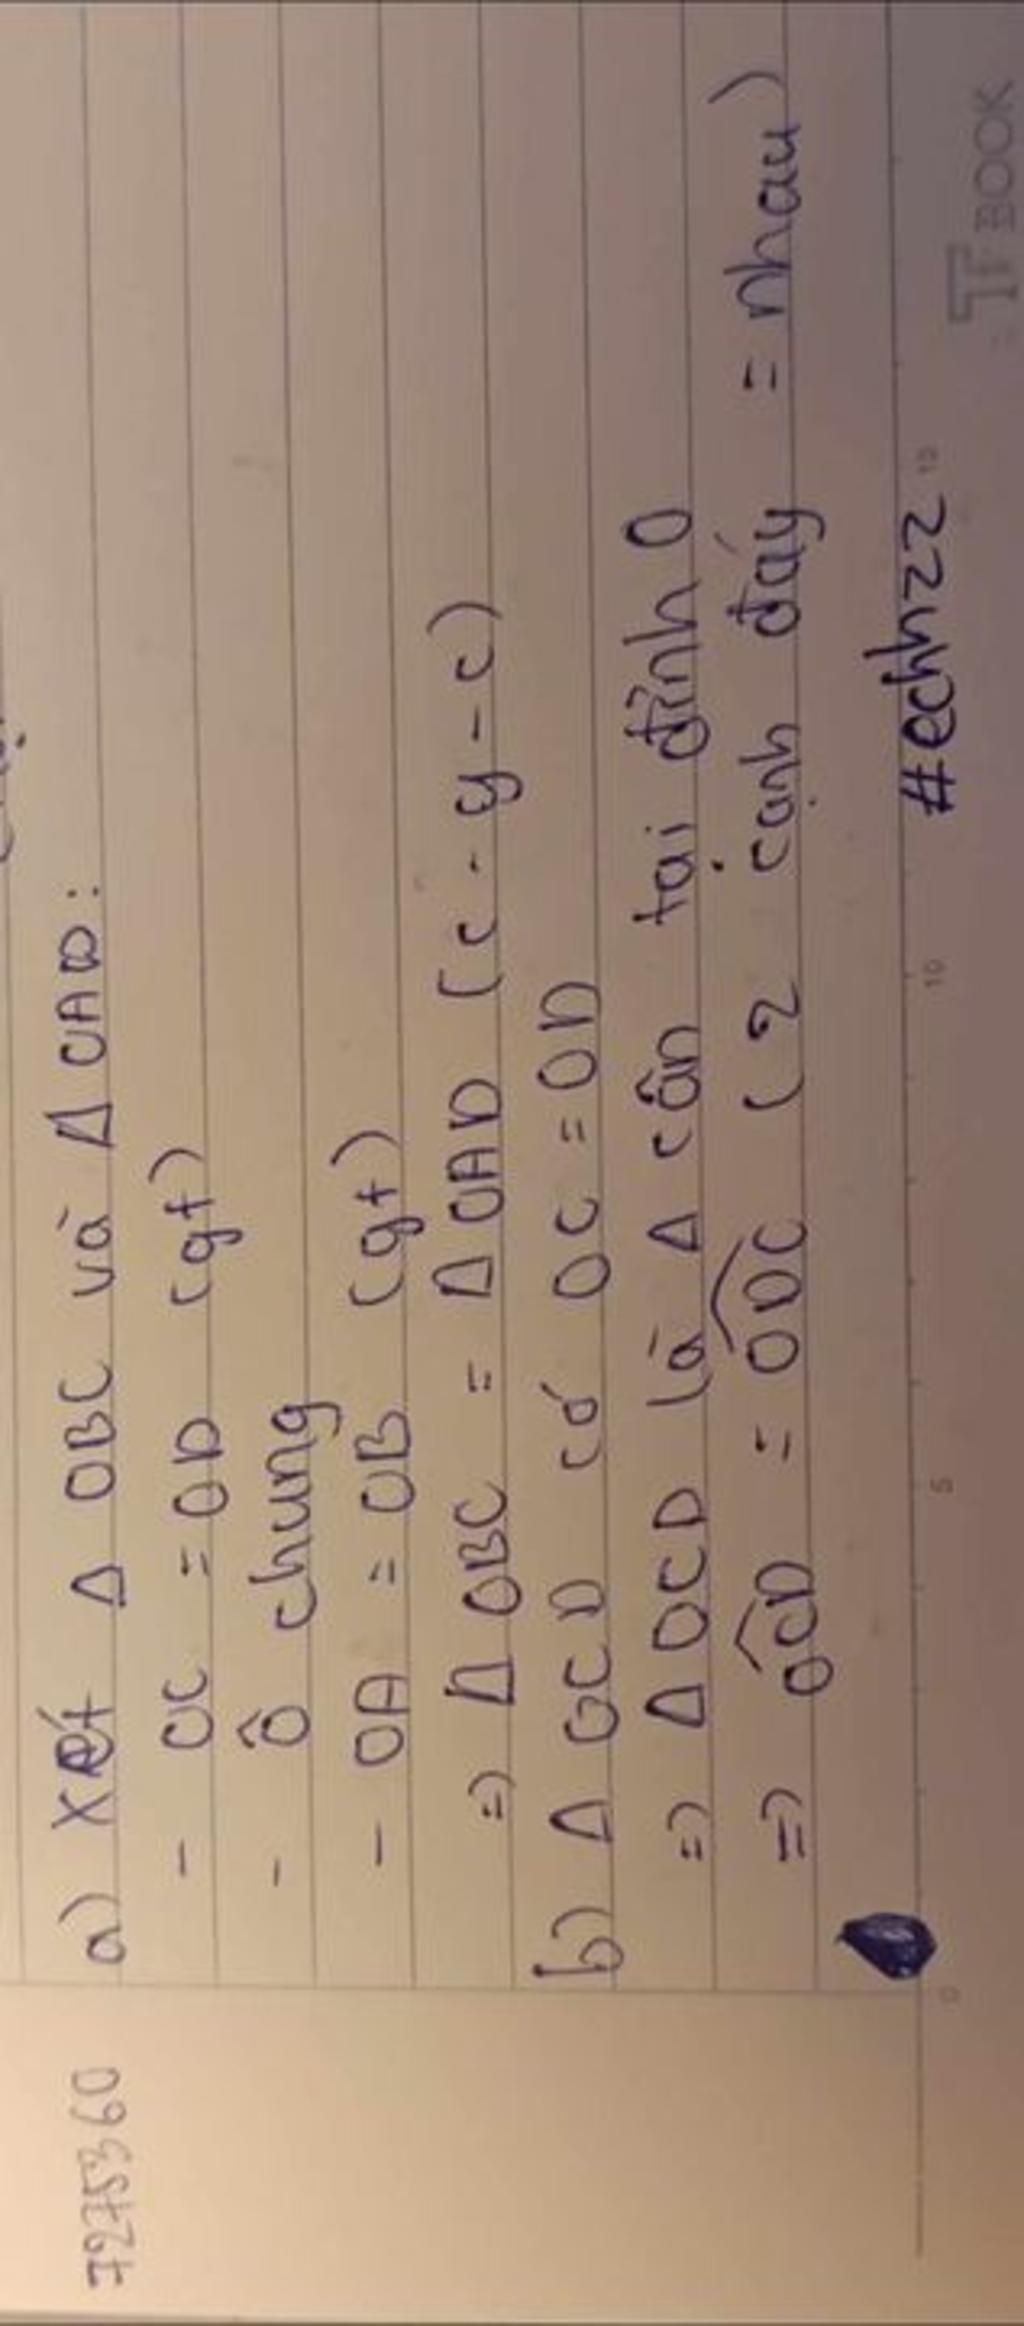 a) Xét Δ OBC và Δ OAD:
- OC = OD (gt)
- Ô chung
- OA = OB (gt)
=> Δ OBC = Δ OAD (c - g - c)
b) Δ OCD có OC = OD
=> Δ OCD là Δ cân tại đỉnh O
=> OĈD = OD̂C (2 cạnh đáy = nhau)
#echzz
0 5 10 15
TF BOOK